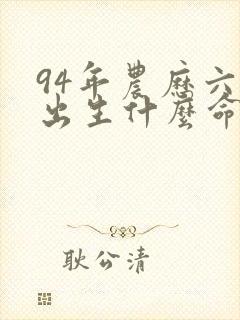 94年農曆六
出生什麼命
耿公清